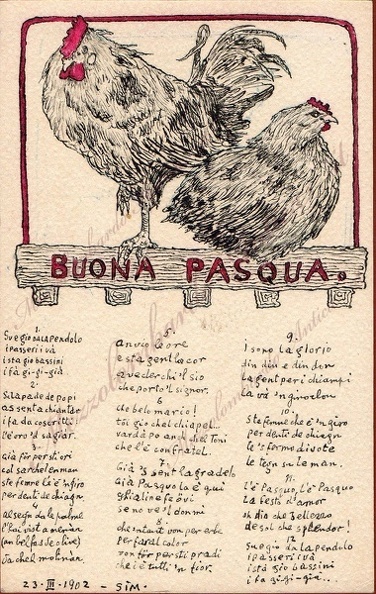 BUONA PASQUA.
1.
Sue giò dala pendolo
i passeri i và
i sta giò bassini
i fà gi-gi-già
2.
Si la pade de popi
as senta chiantar
i fa da coseritti
l'è oro d'sagiar.
3.
Già fôr per sti ori
col sarchel en man
ste femre là è 'n giro
per dente de chiagn
4
al segn de la palme
l'hai vist a nenàr
(an bel fas de olive)
da chel molinàr
5.
an vio le ore
e sta gent lo cor
a veder chi'l sio
che porto'l signor.
6
che bel mario!
toi gio chel chiapel
varda po and'chel Toni
che l'è confratel.
7.
Già 'Ssent la gradelo
Già Pasquo la è quì
ghialio e fe ôvi
se no ve'l donmi
8
che'ntant von per erbe
per far al color
von fôr per sti pradi
che i è tutti 'n fior.
9.
I sono la glorio
din din e din don
la gent per i chiampi
la và 'nginoclon
10.
Ste femne che è 'n giro
per dente de chiagn
le s'fermo d'vote
le tegn su le man.
11.
L'è Pasquo, l'è Pasquo
la festa d'amor
oh dio che belezzo
de sol che splendor!
12
Sue giò da la pendolo
i passeri i và
i sta giò bassini
i fa gi-gi-già...
23-III-1902 - SIM-